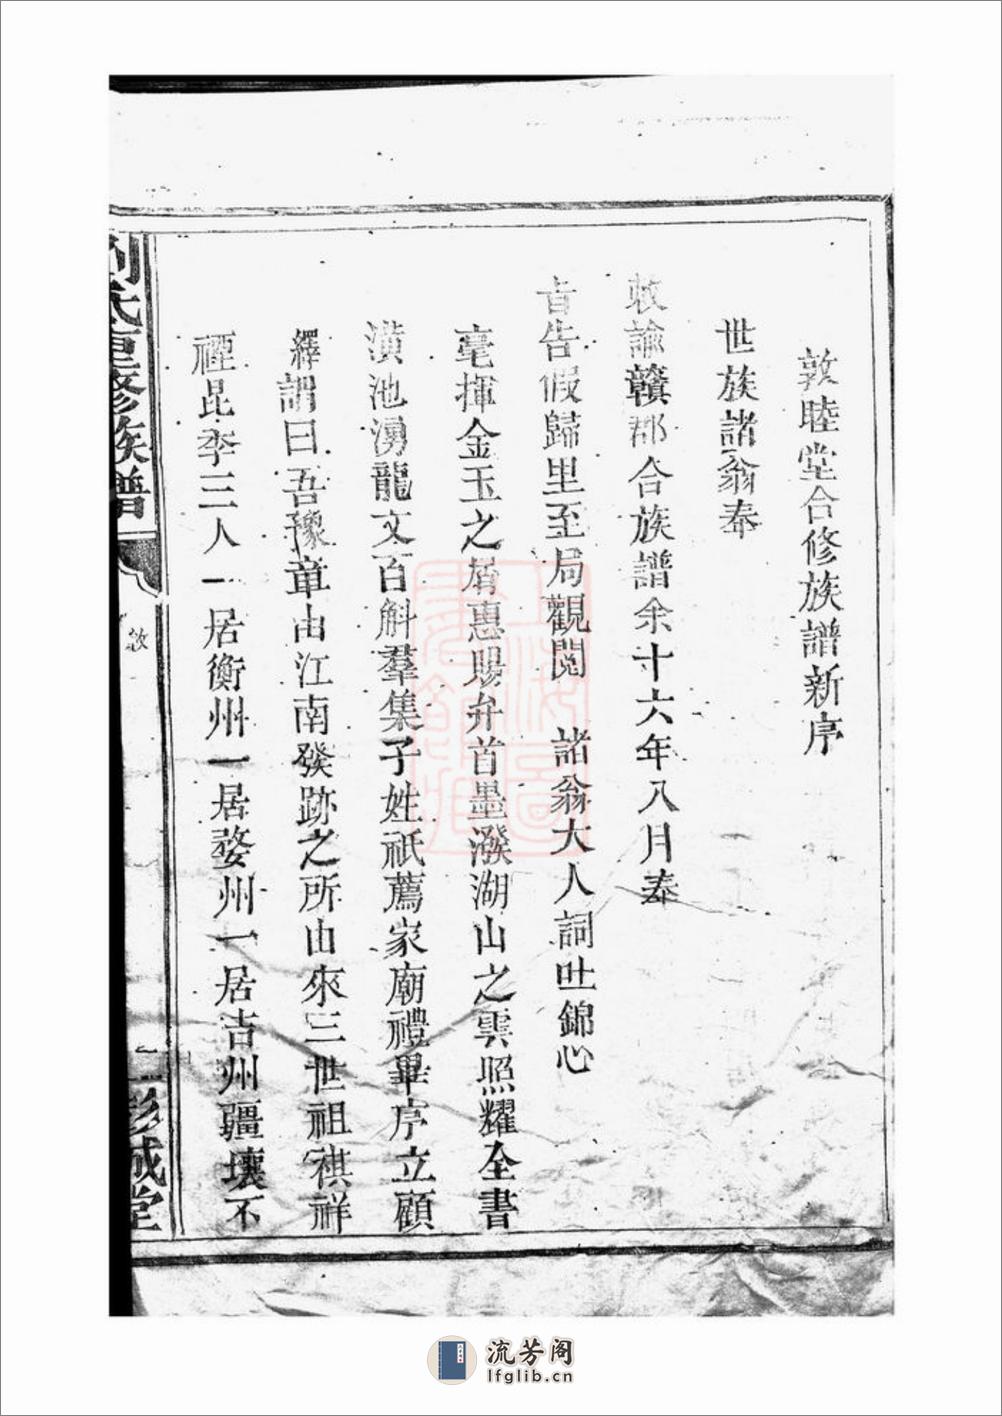 敦睦堂合修族譜新序
世族諸翁奉
敕諭贛郡合族譜余十六年八月奉
旨告假歸里至局觀閱　諸翁大人詞吐錦心
毫揮金玉之屑惠賜弁首墨潑湖山之雲照耀全書
潢池湧龍文百斛羣集子姓祇薦家廟禮畢序立顧
繹謂曰吾豫章由江南發跡之所由來三世祖祺祥
禋昆季三人一居衡州一居婺州一居吉州疆壤不
劉氏重修族譜
敦
二
彭城堂
流芳阁
lfglib.cn